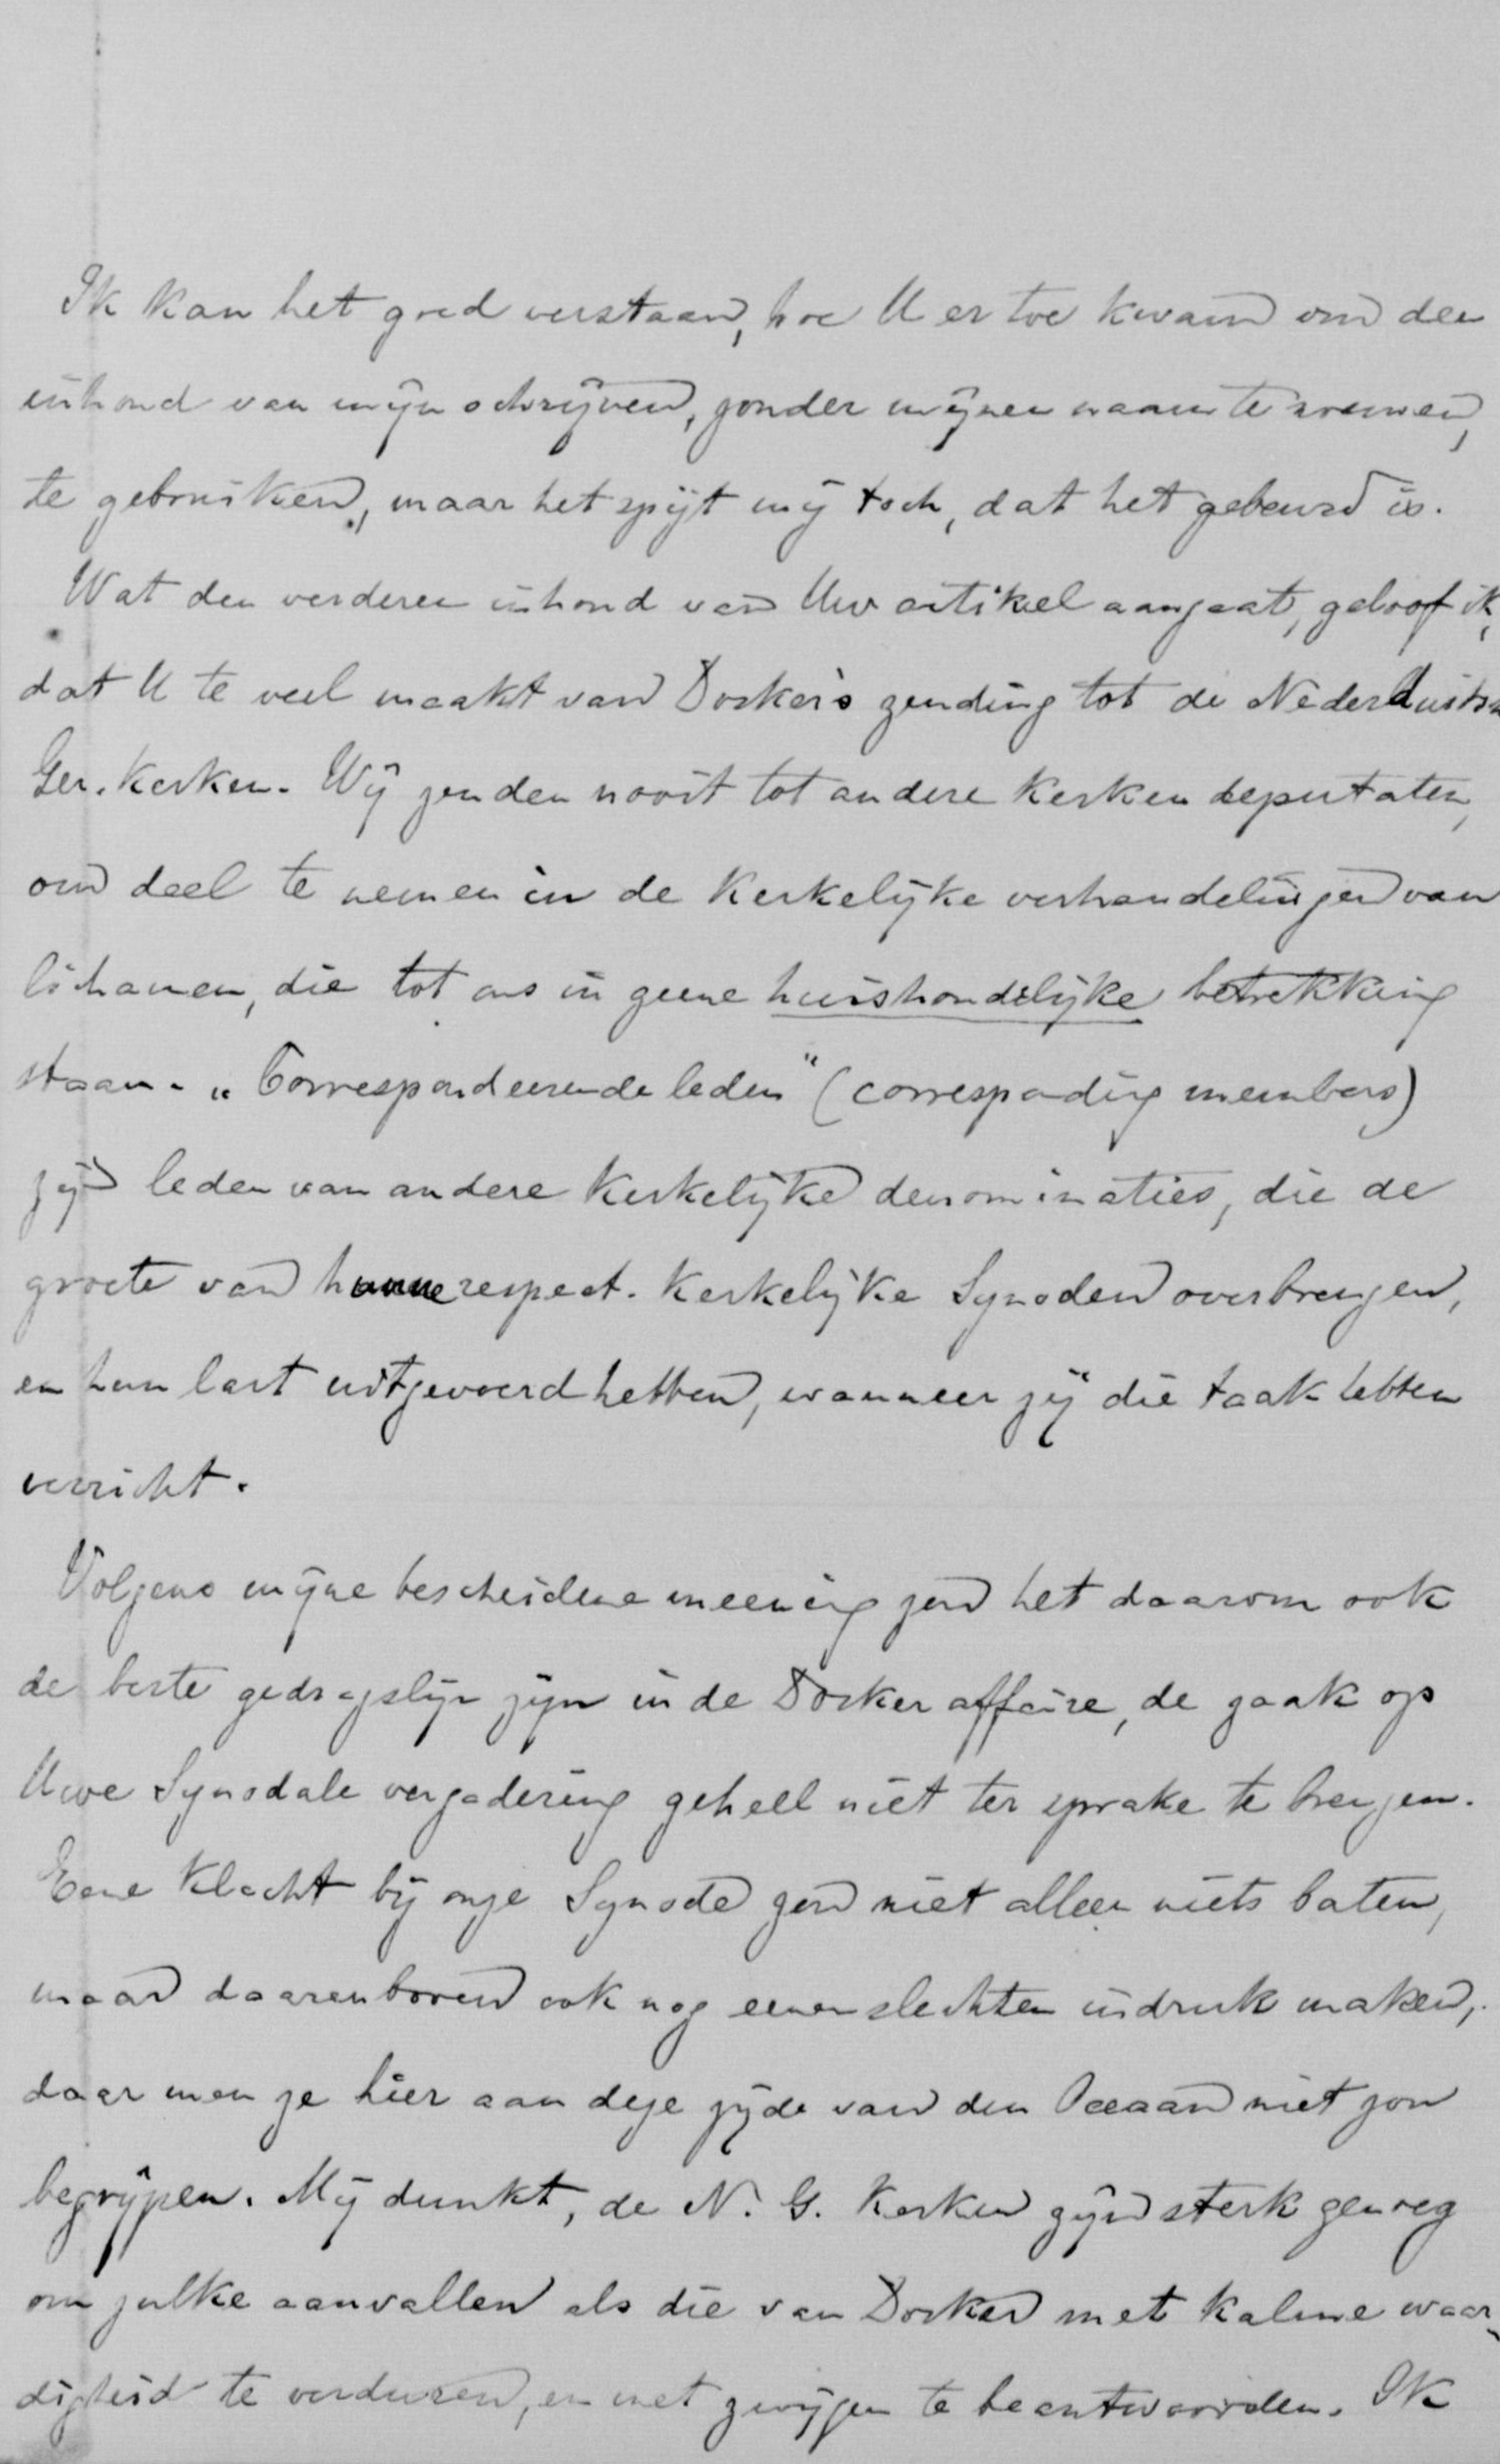 Ik kan het goed verstaan, hoe U er toe kwam om den
inhoud van mijn schrijven, zonder mijnen naam te noemen,
te gebruiken, maar het spijt mij toch, dat het gebeurd is.
Wat den verderen inhoud van Uw artikel aangaat, geloof ik,
dat U te veel maakt van Dosker's zending tot de Nederduitsch
Ger. Kerken. Wij zenden nooit tot andere Kerken deputaten,
om deel te nemen in de Kerkelijke verhandelingen van
lichamen, die tot ons in geene huishoudelijke betrekking
staan. „Correspondeerende leden" (corresponding members)
zijn leden van andere Kerkelijke denominaties, die de
groete van hunne respect. Kerkelijke Synoden overbrengen,
en hun last uitgevoerd hebben, wanneer zij die taak hebben
verricht.
Volgens mijne bescheidene meening zou het daarom ook
de beste gedragslijn zijn in de Dosker affaire, de zaak op
Uwe Synodale vergadering geheel niet ter sprake te brengen.
Eene Klacht bij onze Synode zou niet alleen niets baten,
maar daarenboven ook nog eenen slechten indruk maken,
daar men ze hier aan deze zijde van den Oceaan niet zou
begrijpen. Mij dunkt, de N. G. Kerken zijn sterk genoeg
om zulke aanvallen als die van Dosker met kalme waar-
digheid te verduren, en met zwijgen te beantwoorden. Ik